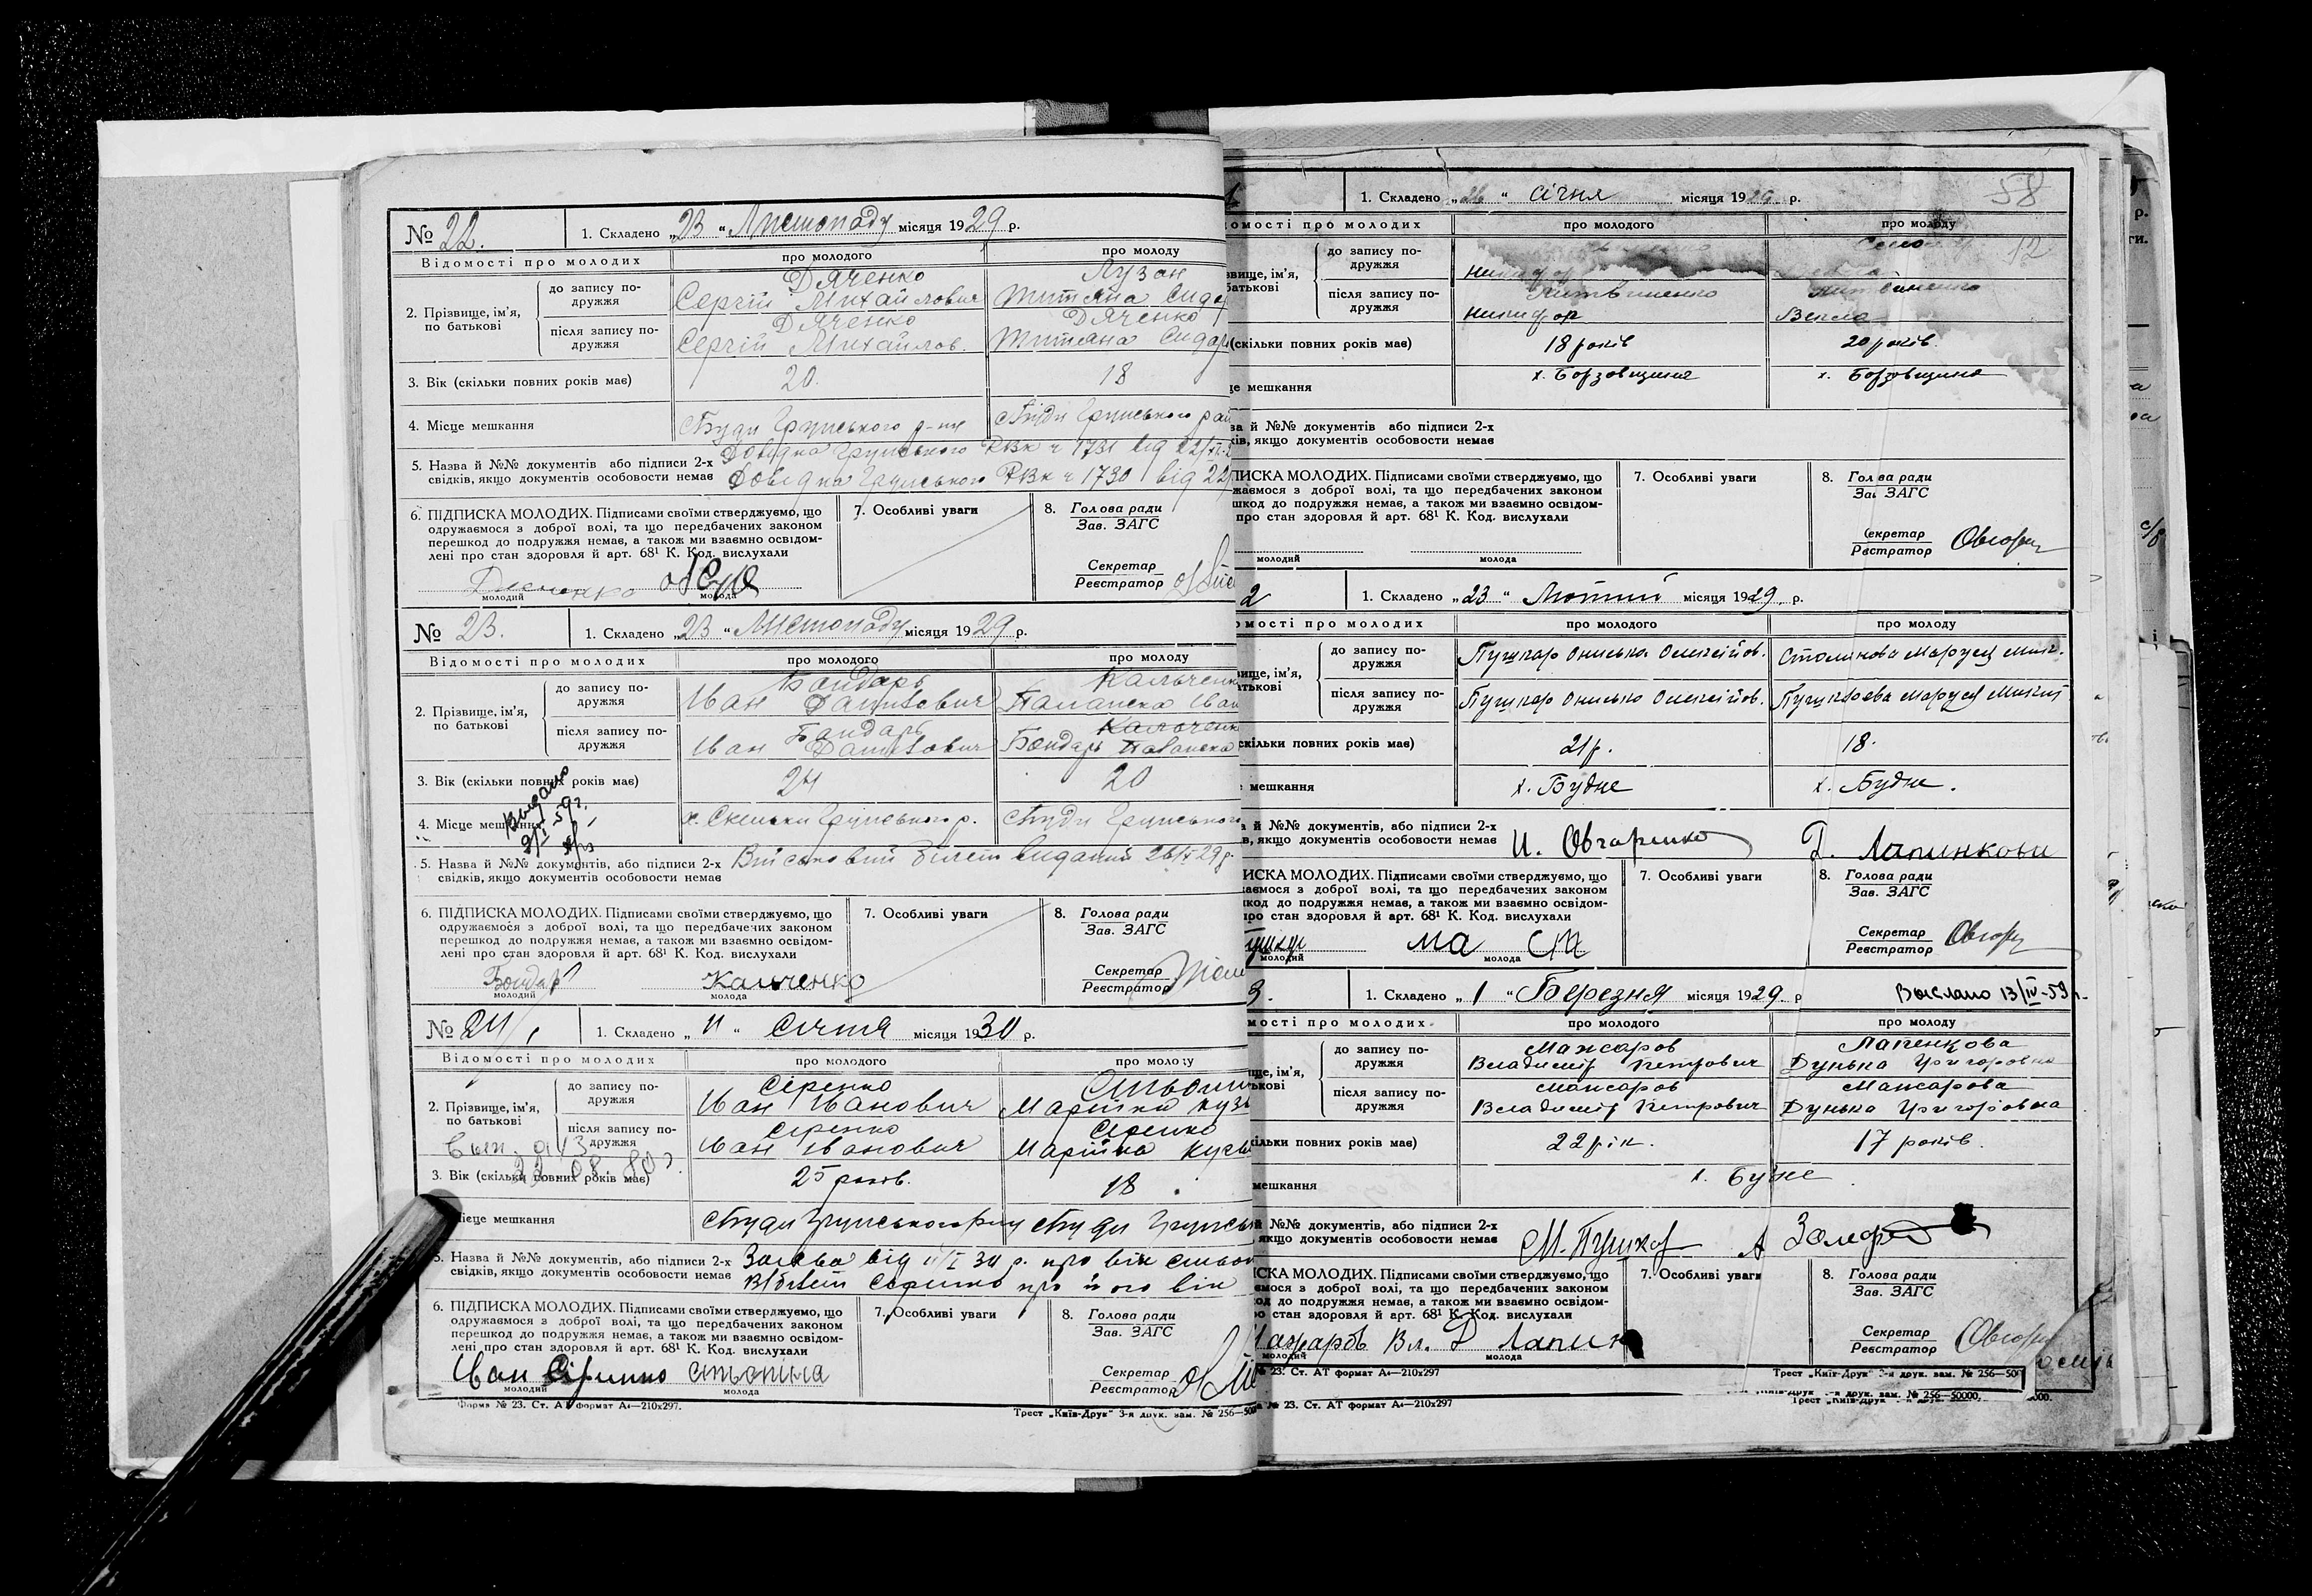 № 22. 1. Складено „23 “ Листопаду місяця 1929 р.
Відомості про молодих про молодого про молоду
2. Прізвище, ім'я, по батькові
до запису подружжя
Дяченко Лузан
Сергій Михайлович Титяна Сидор
після запису подружжя
Дяченко Дяченко
Сергій Михайлов. Титяна Сидор
3. Вік (скільки повних років має) 20. 18
4. Місце мешкання с Буди Грунського р-ну с Буди Грунського рай
5. Назва й №№ документів або підписи 2-х Довідка Грунського РВК ч 1731 від 22/XI-2
свідків, якщо документів особовости немає Довідка Грунського РВК ч 1730 від 22/
6. ПІДПИСКА МОЛОДИХ. Підписами своїми стверджуємо, що
одружаємося з доброї волі, та що передбачених законом
перешкод до подружжя немає, а також ми взаємно освідом-
лені про стан здоровля й арт. 68¹ К. Код. вислухали
Дяченко
молодий молода
7. Особливі уваги
8. Голова ради
Зав. ЗАГС
Секретар
Реєстратор
№ 23. 1. Складено „23 “ Листопаду місяця 1929 р.
Відомості про молодих про молодого про молоду
2. Прізвище, ім'я, по батькові
до запису подружжя
Бондарь Кальченк
Іван Данилович Паланска Іван
після запису подружжя
Бондарь Кальченк
Іван Данилович Бондарь Паланска
3. Вік (скільки повних років має) 24 20
Выдано
9/I-59г.
4. Місце мешкання х. Скеньки Грунського р. с Буди Грунського
5. Назва й №№ документів, або підписи 2-х Військовий білет виданий 26/X 29 р.
свідків, якщо документів особовости немає
6. ПІДПИСКА МОЛОДИХ. Підписами своїми стверджуємо, що
одружаємося з доброї волі, та що передбачених законом
перешкод до подружжя немає, а також ми взаємно освідом-
лені про стан здоровля й арт. 68¹ К. Код. вислухали
Бондарь Кальченко
молодий молода
7. Особливі уваги
8. Голова ради
Зав. ЗАГС
Секретар
Реєстратор
№ 24/1 1. Складено „ 11 “ Січня місяця 1930 р.
Відомості про молодих про молодого про молоду
2. Прізвище, ім'я, по батькові
до запису подружжя
Сіренко Стьопи
Іван Іванович Марійка Кузь
після запису подружжя
Сіренко Сіренко
Іван Іванович Марійка Кузь
22 08 80
3. Вік (скільки повних років має) 25 років. 18
ісце мешкання с Буди Грунського р-ну с Буди Грунсь
5. Назва й №№ документів, або підписи 2-х Заява від 11/I 30 р. про вік стьоп
свідків, якщо документів особовости немає про його вік
6. ПІДПИСКА МОЛОДИХ. Підписами своїми стверджуємо, що
одружаємося з доброї волі, та що передбачених законом
перешкод до подружжя немає, а також ми взаємно освідом-
лені про стан здоровля й арт. 68¹ К. Код. вислухали
Іван Сіренко стьопіна
молодий молода
7. Особливі уваги
8. Голова ради
Зав. ЗАГС
Секретар
Реєстратор
Форма № 23. Ст. АТ формат А₄—210х297. Трест „Київ-Друк“ 3-я друк. зам. № 256—50
58
1. Складено „26 “ січня місяця 1929 р.
омості про молодих про молодого про молоду
12
звище, ім'я,
батькові
до запису подружжя
Никифор
після запису подружжя
Литвиненко Литвиненко
Никифор Векла
(скільки повних років має) 18 років 20 років.
це мешкання х. Борзовщина х. Борзовщина
ва й №№ документів або підписи 2-х
ків, якщо документів особовости немає
ПИСКА МОЛОДИХ. Підписами своїми стверджуємо, що
жаємося з доброї волі, та що передбачених законом
шкод до подружжя немає, а також ми взаємно освідом-
про стан здоровля й арт. 68¹ К. Код. вислухали
молодий молода
7. Особливі уваги
8. Голова ради
Зав. ЗАГС
Секретар
Реєстратор
2 1. Складено „23 “ Лютий місяця 1929 р.
омості про молодих про молодого про молоду
вище, ім'я,
атькові
до запису подружжя
Пушкар Ониська Олексійов. Столикова Маруся Микит.
після запису подружжя
Пушкар Онисько Олексійов. Пушкарева Маруся Микит
скільки повних років має) 21 р. 18.
мешкання х. Будне х. Будне.
а й №№ документів, або підписи 2-х
в, якщо документів особовости немає И. Овчаренко Г. Лапинкови
ИСКА МОЛОДИХ. Підписами своїми стверджуємо, що
аємося з доброї волі, та що передбачених законом
код до подружжя немає, а також ми взаємно освідом-
ро стан здоровля й арт. 68¹ К. Код. вислухали
ма Ст
молодий молода
7. Особливі уваги
8. Голова ради
Зав. ЗАГС
Секретар
Реєстратор
3. 1. Складено „ 1 “ Березня місяця 1929 р Выслано 13/IV-59г.
мості про молодих. про молодого про молоду
ще, ім'я,
ькові
до запису подружжя
Мажаров Лапенкова
Владимір Петрович Дунька Григоровна
після запису подружжя
Мажаров Мажарова
Владимір Петрович Дунька Григоровна
ільки повних років має) 22 рік. 17 років.
мешкання х. Будне
й №№ документів, або підписи 2-х
якщо документів особовости немає М. Пушкар А
СКА МОЛОДИХ. Підписами своїми стверджуємо, що
ємося з доброї волі, та що передбачених законом
од до подружжя немає, а також ми взаємно освідом-
о стан здоровля й арт. 68¹ К. Код. вислухали
ажаров Вл. Д Лапин
молодий молода
7. Особливі уваги
8. Голова ради
Зав. ЗАГС
Секретар
Реєстратор
№ 23. Ст. АТ формат А₄—210х297 Трест „Київ-Друк“ 3-я друк. зам. № 256—50
№ 23. Ст. АТ формат А₄—210х297 Трест „Київ-Друк
друк. зам. № 256—50000.